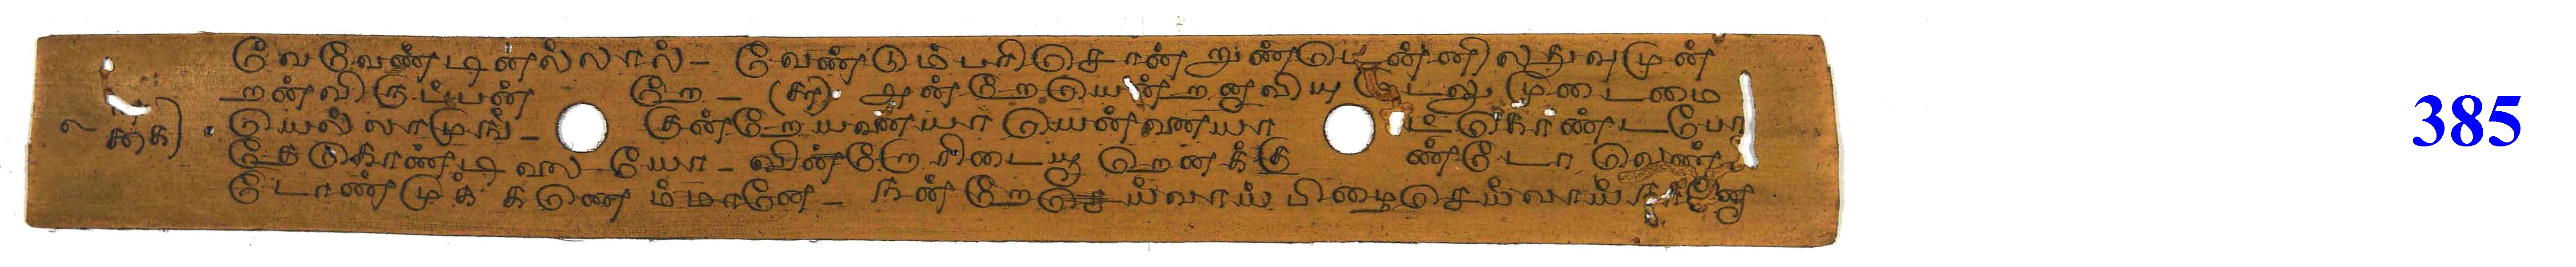 வேவேண்டினல்லால் - வேண்டும்பரிசொன்றுண்டென்னிலதுவுமுன்
றன்விருப்பன் றே - (சு) அன்றேயென்றனாவியு முடலு முடைமை
யெல்லாமுங் - குன்றேயனையா யென்னையா ட்கொண்டபோ 385
தேகொண்டிலையோ - வின்றோரிடையூறெனக்கு ண்டோ வெண்
டோண்முக்கணெம்மானே - நன்றேசெய்வாய் பிழைசெய்வாய் நானோ